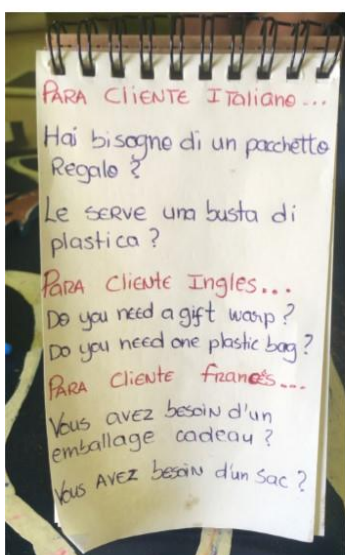 PARA CLIENTE ITaliano...
Hai bisogno di un pacchetto
Regalo?
Le SERVE una busta di
plastica?
PARA Cliente Ingles...
Do you need a gift warp?
Do you need one plastic bag?
PARA Cliente francés...
Vous avez besoin d'un
emballage cadeau?
Vous AVEZ besoin d'un sac?